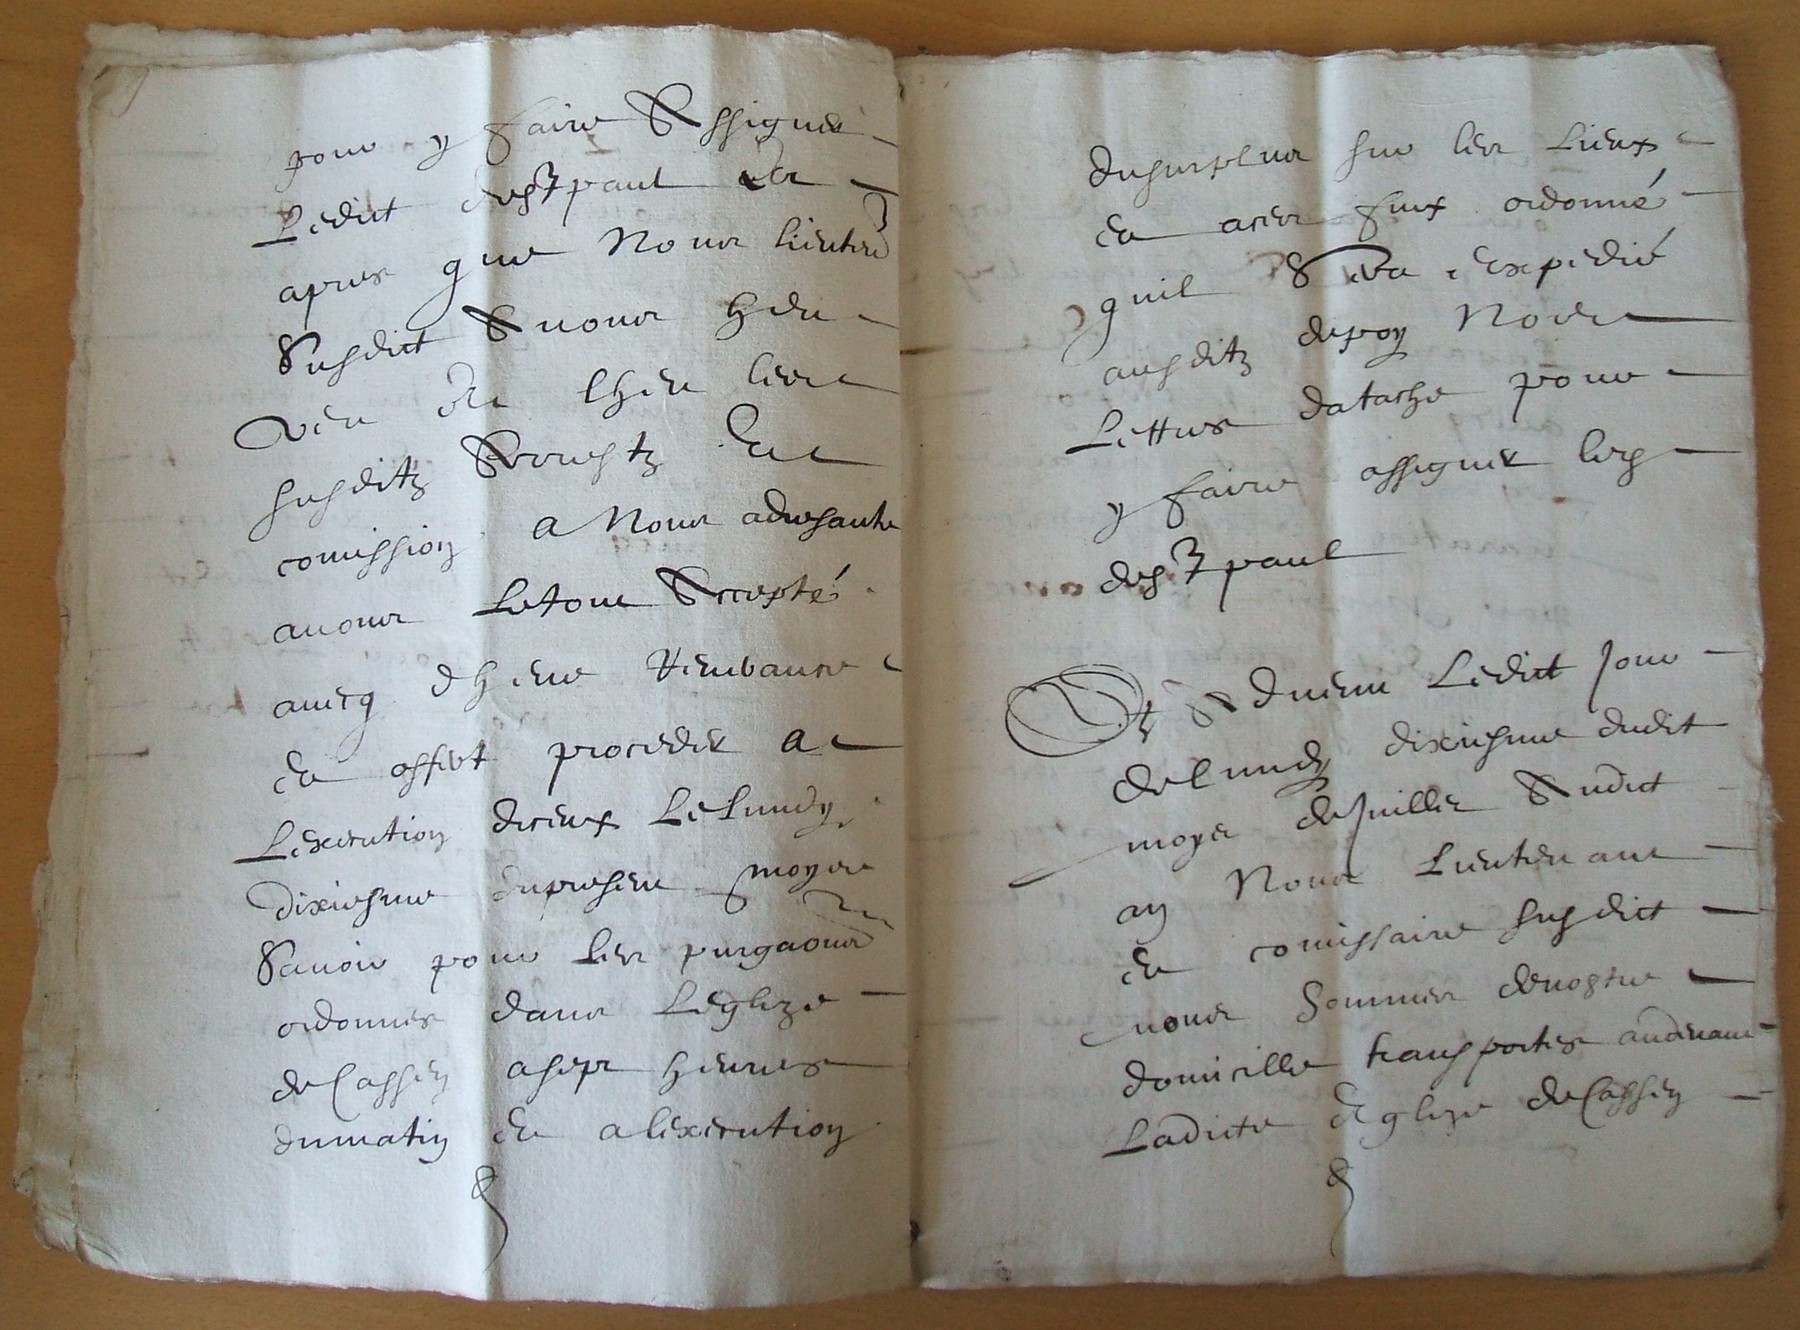 pour y faire Assigner
Ledict des.t paul Et
apres que Nous lieuten.t
Susdict Avons heu
veu et leheu lesd
susditz Arrestz Et
comission a Nous adresante
avons Letout Accepté
avecq dheue Reverance
Et offert proceder a
Lexecution diceux Le Lundy
dixiesme dupresent moys
Savoir pour les purgaõns
ordonnes dans Leglize
de Cassen a sept heures
dumatin Et a lexecution
dusurplus sur les Lieux
Et aces fins ordonné
quil Sera expedié
ausditz depoy Nos
Lettres datache pour
y faire assigner led
des.t paul
Et Advenu Ledict Jour
de lundy dixiesme dudit
moys de Juillet Audict
an Nous Lieutenant
Et comissaire susdict
nous Sommes de nostre
domicille transportes audevant
Ladicte Eglize de Cassen